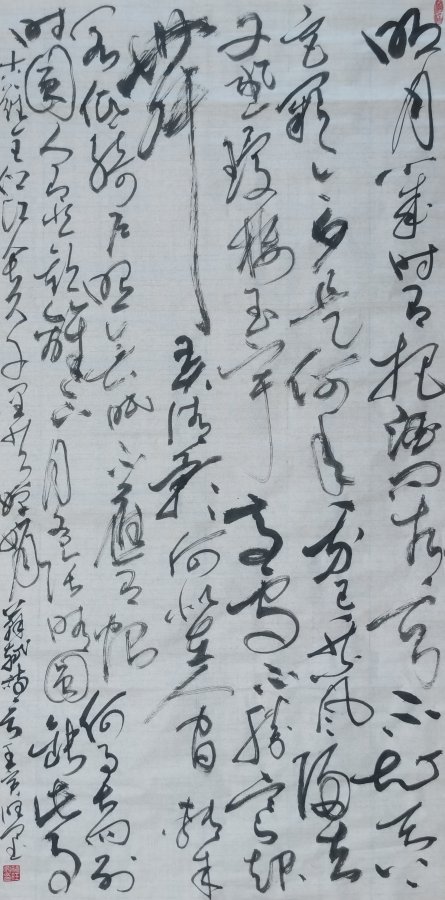 明月幾時有把酒問青天不知天上
宮闕今夕是何年我欲乘風歸去
又恐瓊樓玉宇高處不勝寒起
舞弄清影何似在人間轉朱
閣低綺戶照無眠不應有恨何事長向別
時圓人有悲歡離合月有陰晴圓缺此事
古難全但願人長久千里共嬋娟蘇軾詞